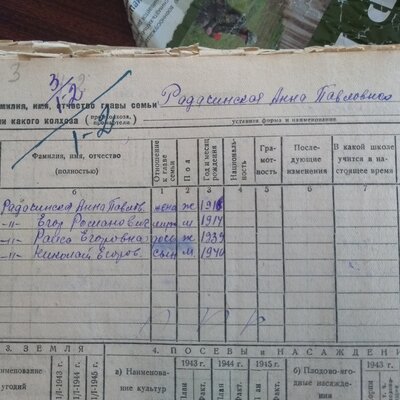 3
3
1-2
1-2
амилия, имя, отчество главы семьи Радасинская Анна Павловна
ли какого колхоза (предколхоза, председатели) уставная форма и наименование
Фамилия, имя, отчество (полностью) Отношение к главе семьи Пол Год и месяц рождения Националь-ность Гра-мот-ность После-дующие изменения В какой школе учится в на-стоящее время
6 1 2 3 4 5 6 7
Радасинская Анна Павлов. жена ж 1916
-"- Егор Романович муж м 1914
-"- Раиса Егоровна дочь ж 1939
-"- Николай Егоров. сын м 1940
3. ЗЕМЛЯ 4. ПОСЕВЫ и НАСАЖДЕНИ
именование угодий /I-1943 г. /I-1944 г. /I-1945 г. а) Наименова-ние культур 1943 г. 1944 г. 1945 г. б) Плодово-яго-дные насажде-ния 1943 г.
лан Факт. План Факт. План